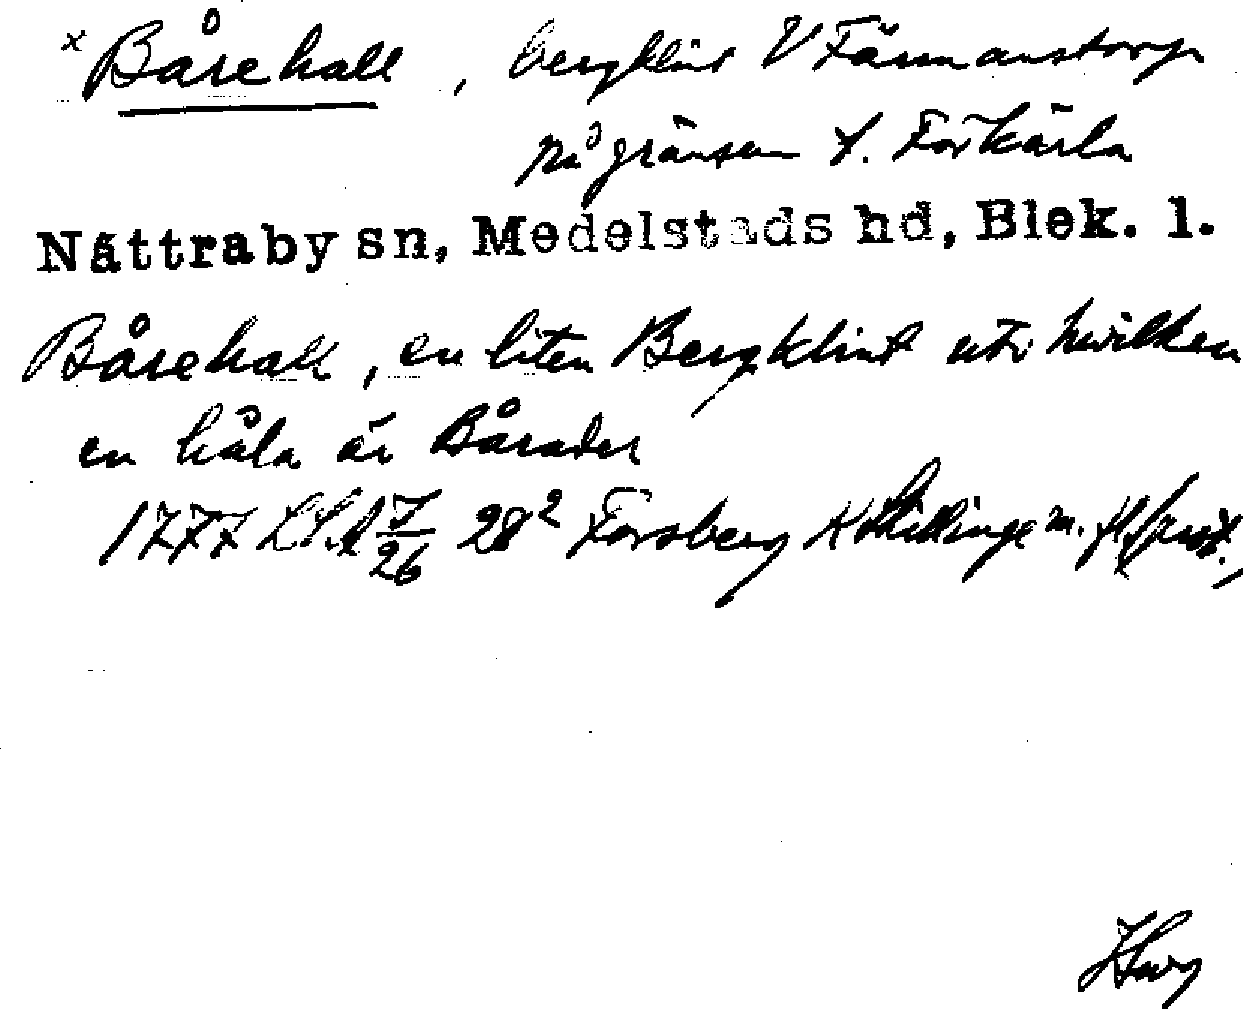 x Båsehall, bergklint V Färmanstorp
på gränsen t. Förkärla
Nättraby sn, Medelstads hd, Blek. l.
Båsehall, en liten Bergklint uti hwilken
en håla är Båsadu
1777 LSA 7/26 28² Forsberg K Skillinge m. fl.